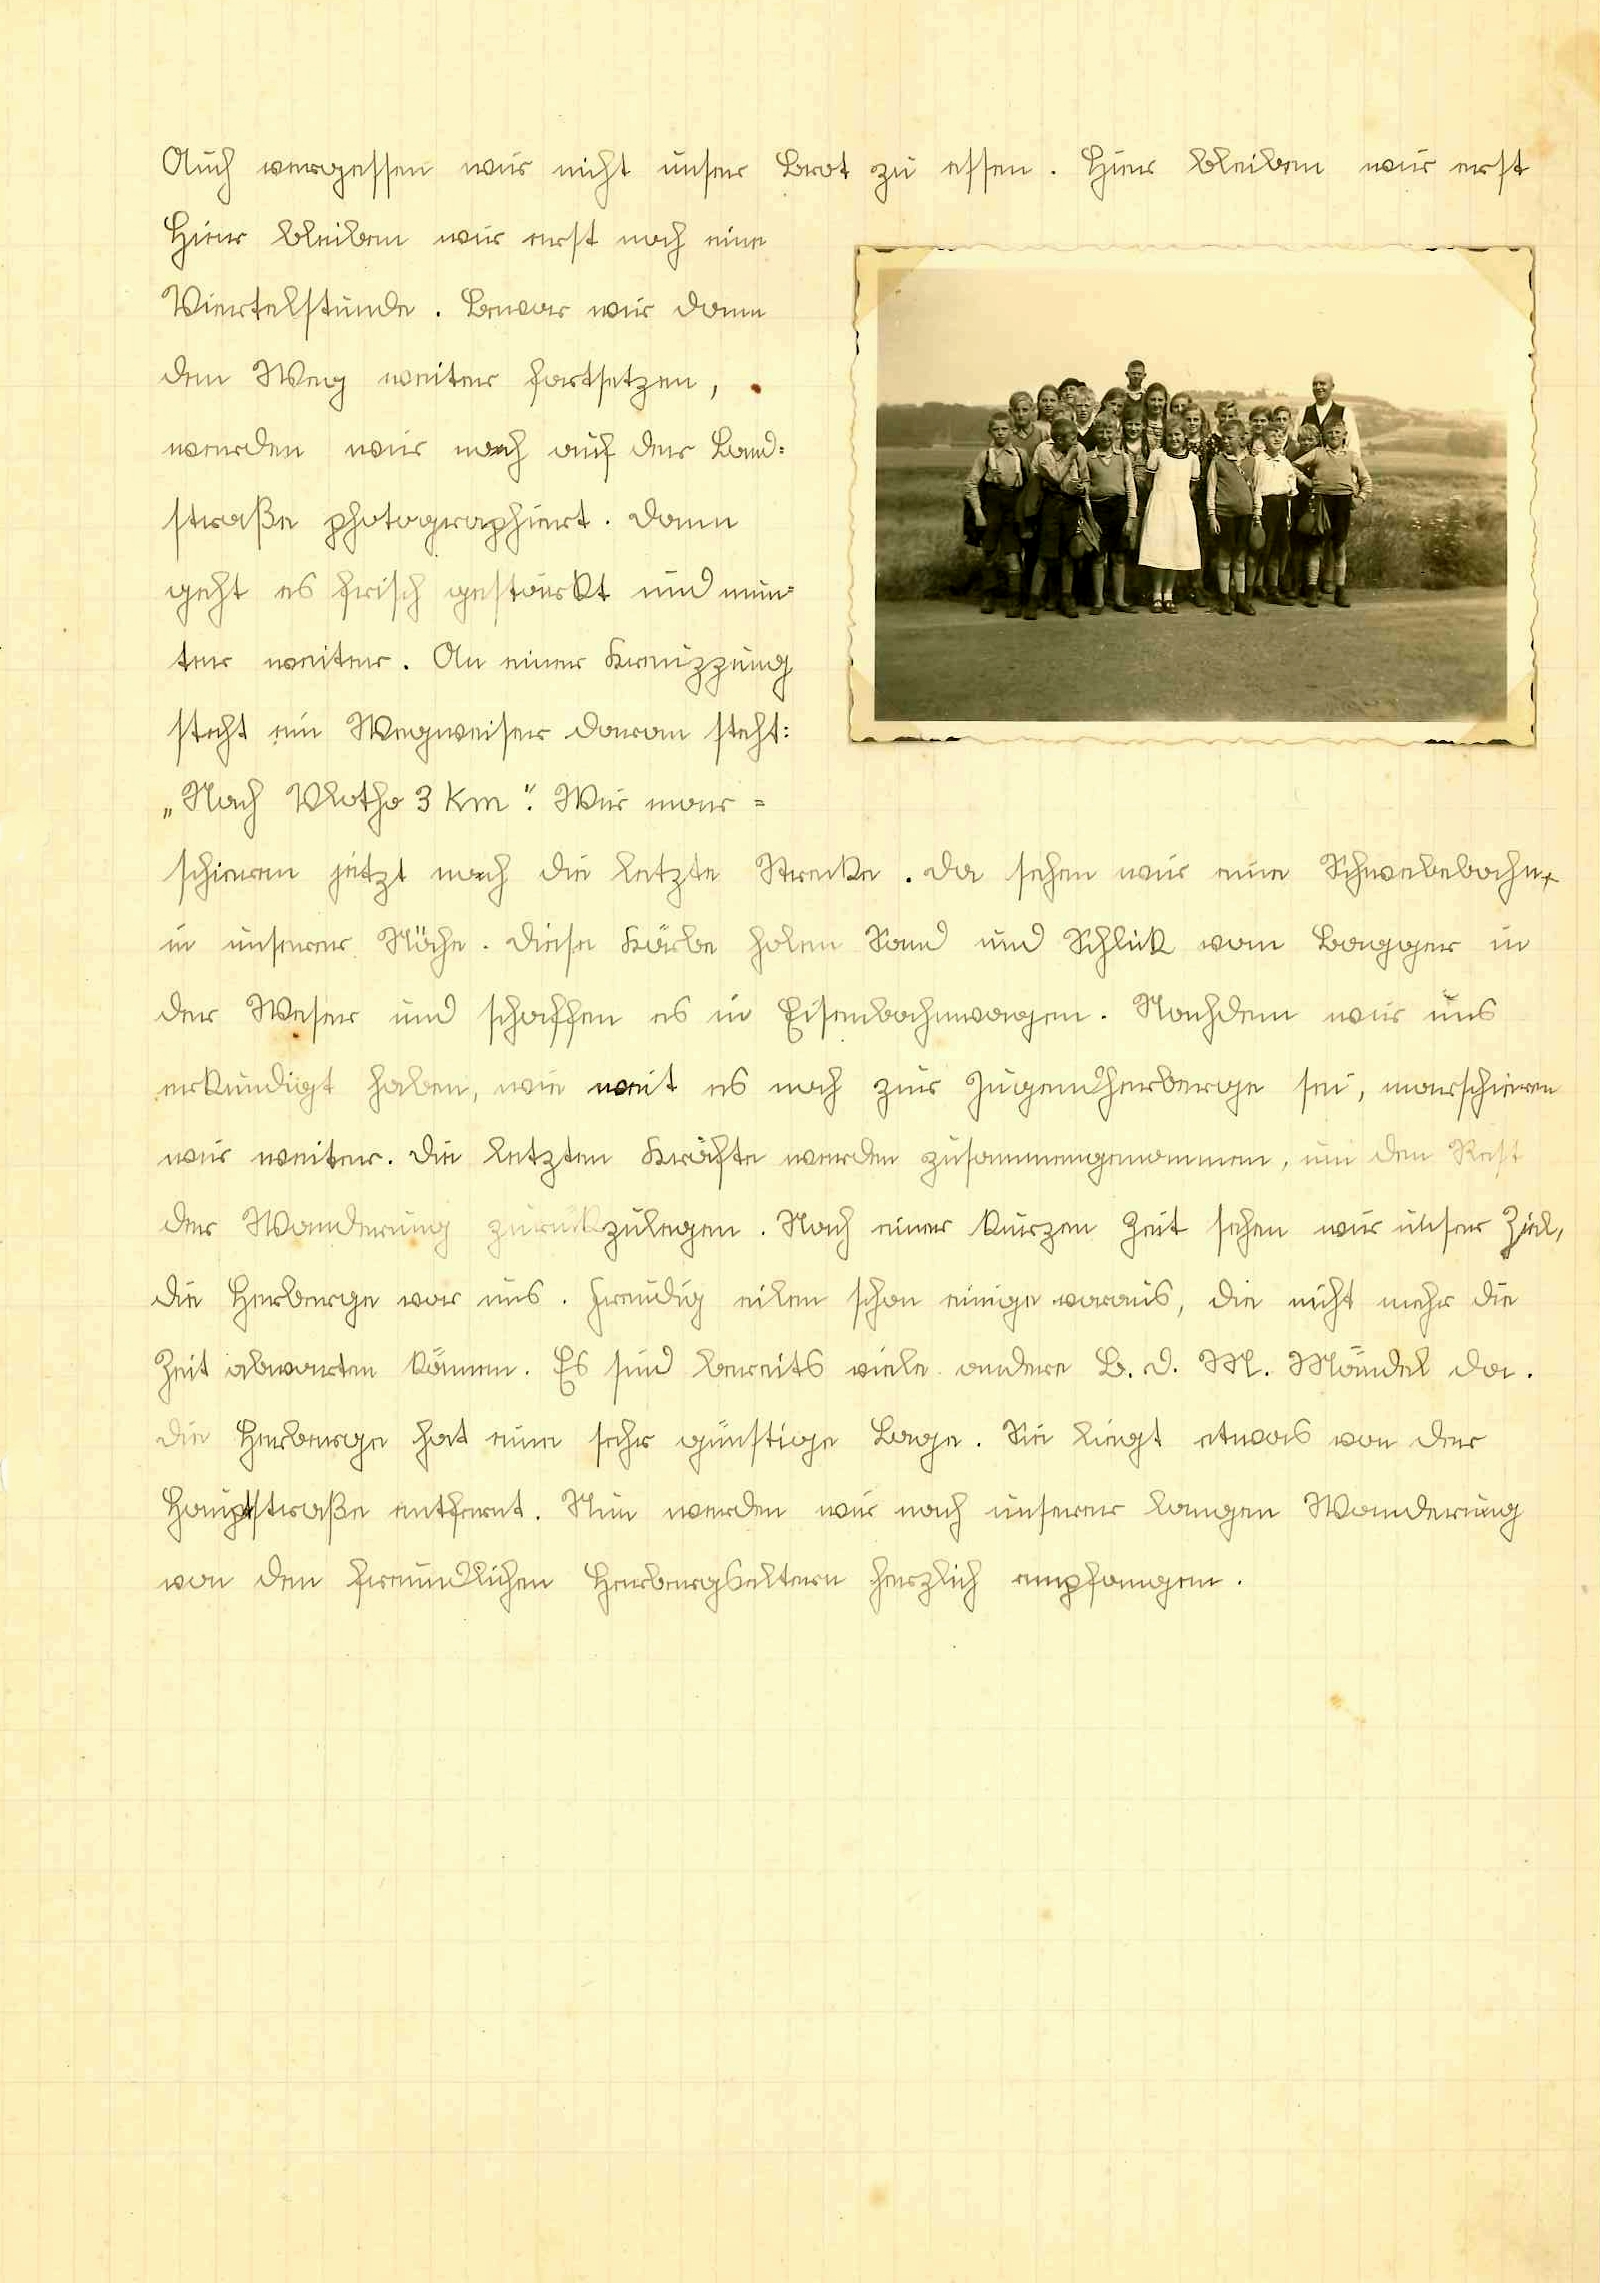 Auch vergessen wir nicht unser Brot zu essen. Hier bleiben wir erst
Hier bleiben wir erst noch eine
Viertelstunde. Bevor wir dann
den Weg weiter fortsetzen,
werden wir noch auf der Land=
straße photographiert. Dann
geht es frisch gestärkt und mun=
ter weiter. An einer Kreuzzung
steht ein Wegweiser daran steht:
„Nach Vlotho 3 km". Wir mar=
schieren jetzt noch die letzte Strecke. Da sehen wir eine Schwebebahn
in unserer Nähe. Diese Körbe holen Sand und Schlick vom Bagger in
der Weser und schaffen es in Eisenbahnwagen. Nachdem wir uns
erkundigt haben, wie weit es noch zur Jugendherberge sei, marschieren
wir weiter. Die letzten Kräfte werden zusammengenommen, um den Rest
der Wanderung zurückzulegen. Nach einer kurzen Zeit sehen wir unser Ziel,
die Herberge vor uns. Freudig eilen schon einige voraus, die nicht mehr die
Zeit abwarten können. Es sind bereits viele andere B. D. M. Mändel da.
Die Herberge hat eine sehr günstige Lage. Sie liegt etwas von der
Hauptstraße entfernt. Nun werden wir nach unserer langen Wanderung
von den freundlichen Herbergseltern herzlich empfangen.